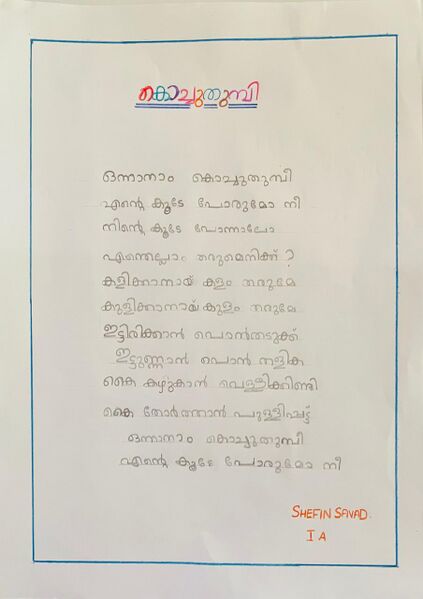 കൊച്ചുതുമ്പി
ഒന്നാനാം കൊച്ചുതുമ്പീ
എന്റെ കൂടെ പോരുമോ നീ
നിന്റെ കൂടെ പോന്നാലോ
എന്തെല്ലാം തരുമെനിക്ക് ?
കളിക്കാനായ് കളം തരുമേ
കുളിക്കാനായ് കുളം തരുമേ
ഇട്ടിരിക്കാൻ പൊൻതടുക്ക്
ഇട്ടുണ്ണാൻ പൊൻ തളിക
കൈ കഴുകാൻ വെള്ളിക്കിണ്ടി
കൈ തോർത്താൻ പുള്ളിപ്പട്ട്
ഒന്നാനാം കൊച്ചുതുമ്പീ
എന്റെ കൂടെ പോരുമോ നീ
SHEFIN SAVAD.
I A